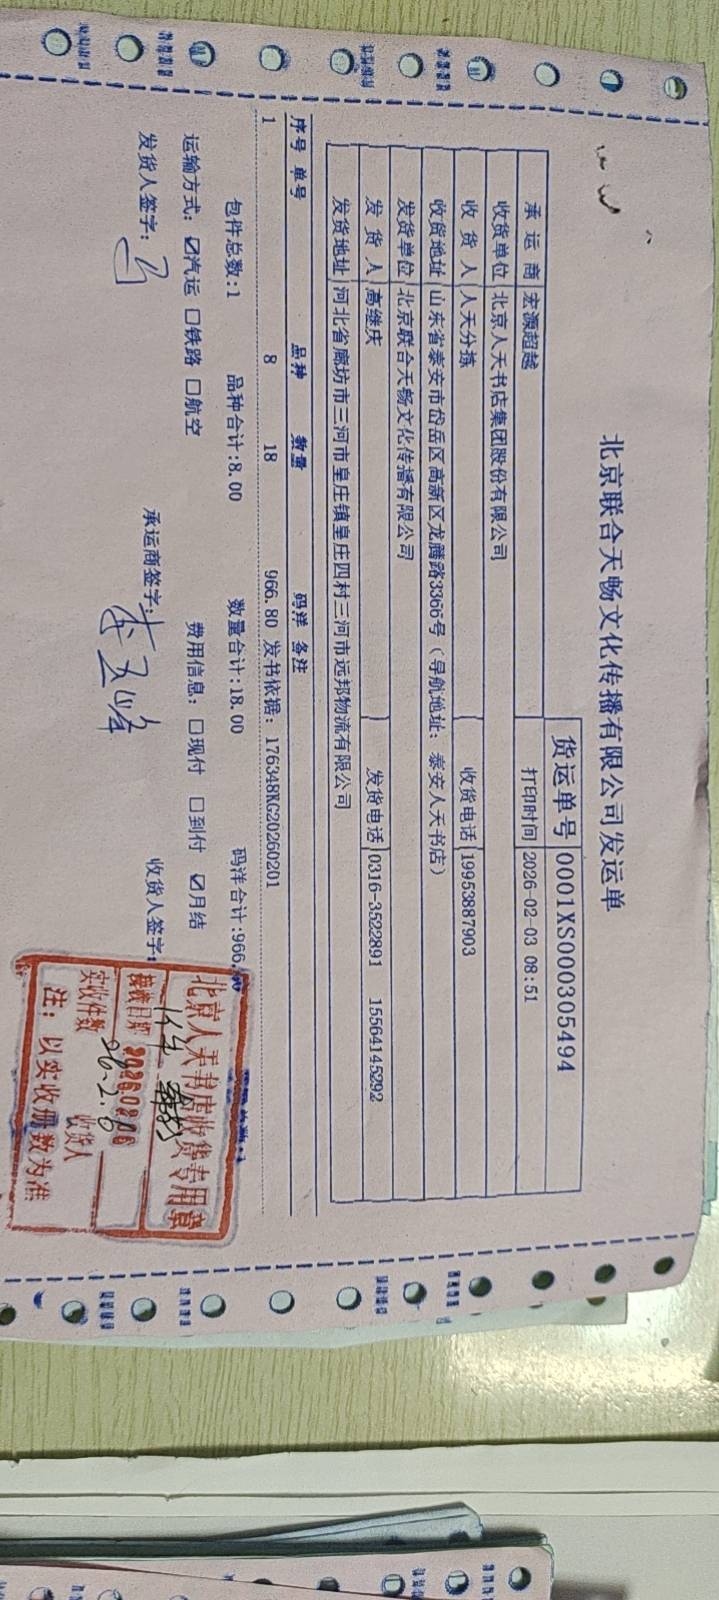 北京联合天畅文化传播有限公司发运单
货运单号 0001XS000305494
承运商 宏源超越 打印时间 2026-02-03 08:51
收货单位 北京人天书店集团股份有限公司
收货人 人天分拣 收货电话 19953887903
收货地址 山东省泰安市岱岳区高新区龙腾路3366号（导航地址：泰安人天书店）
发货单位 北京联合天畅文化传播有限公司
发货人 高继庆 发货电话 0316-3522891 15564145292
发货地址 河北省廊坊市三河市皇庄镇皇庄四村三河市远邦物流有限公司
序号 单号 品种 数量 码洋 备注
1 8 18 966.80 发书依据: 176348KG20260201
包件总数:1 品种合计:8.00 数量合计:18.00 码洋合计:966.
运输方式: ☑汽运 □铁路 □航空 费用信息: □现付 □到付 ☑月结
发货人签字: 承运商签字: 收货人签字:
北京人天书店收货专用章
接收日期 2026.02.06
实收件数 26.2.6 收货人
注：以实收册数为准